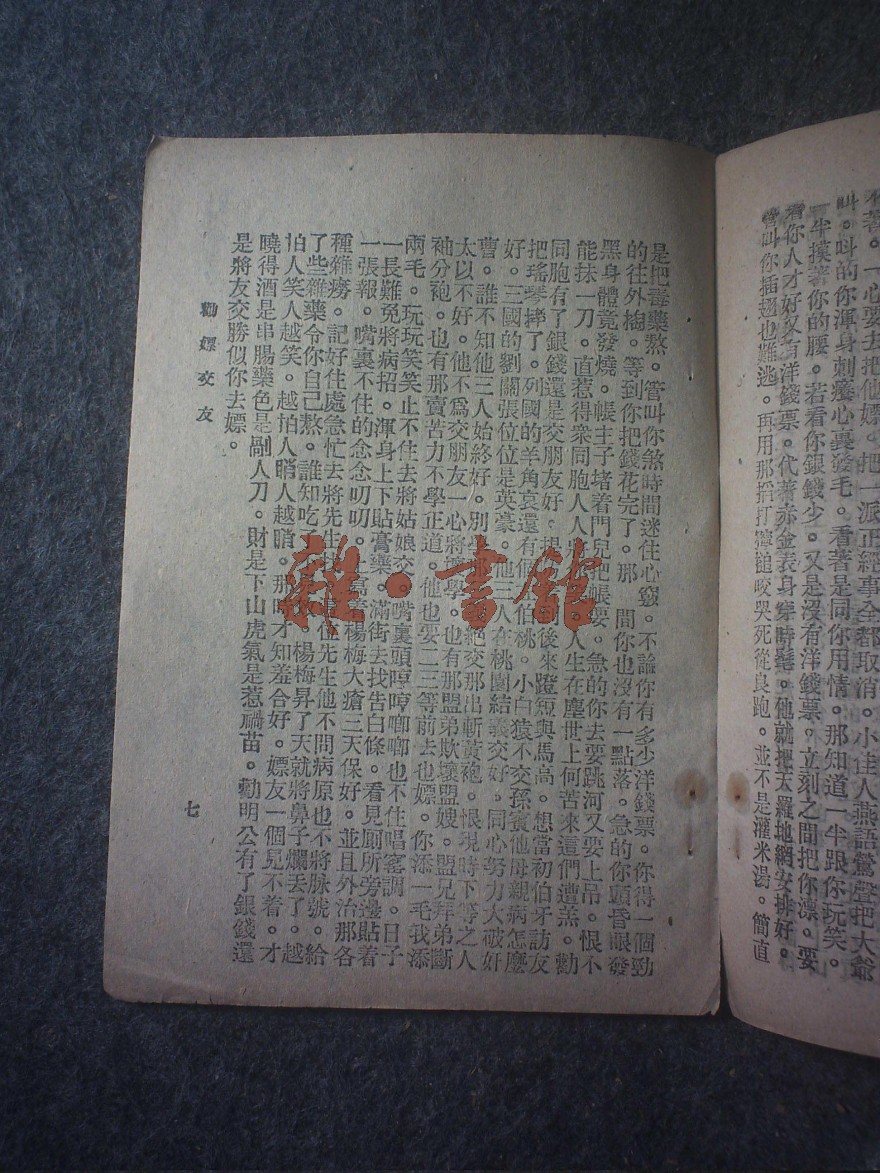 一心要去把他嫖。把一派正經事全都取消。小佳人燕語鶯聲把大爺
叫。叫的你渾身刺癢心裏發毛。看著是同你用情。那知道一半跟你玩笑。
一半摸著你的腰。若看你銀錢少。又是沒有洋錢票。立刻之間把你漂。要
看你人才好又有洋錢票。代著赤金表身穿時髦。他就把天羅地網安排好。
管叫你插翅也難逃。再用那掐打擰鎚咬哭死從良跑。並不是灌米湯。簡直
是把毒藥熬。管叫你煞時間迷住心竅。不論你有多少洋錢票。你得一個勁
的往外掏。等到你把錢花完了。那間你也沒有一點落。急的你頭昏眼發
黑身體竟發燒。帳主子堵着門兒把帳要。急的你去要跳河又要上吊。恨不
能抹一刀。直惹得衆同胞人人人生在塵世上何苦來這們遭羔。勸
同胞有了銀錢還是交朋友好。後來蹬短與馬高。想當初伯牙訪友
把瑤琴摔了。列國的羊角哀還有個伯桃。小白猿不交孫賓他母親病怎麽
好。三國的劉關張位位是英豪。他三人在桃園結義交好。同心努力大破奸
曹。誰不知他三人始終好。別生絕交那出斬黃袍。恨現時下等之人
太以不好。他不爲交朋友一心將壞學。也有那盟弟欺壞盟嫂。盟兄拜弟斷
袖分袍。也有那賣苦力不學正道。他也要二三等前去也嫖。你添一毛我添
兩毛。玩玩笑笑止不住去將姑娘交。嘴裏頭哼哼唧唧也不住唱窰調。日子
一長難免將病招。渾身上下貼膏藥。滿街去找告白條。看見厠所旁邊貼着
一張報。嘴裏不住的念念叨叨。寫着楊梅大瘡三天保好。並且外治那各
種雜癆。記好住處急忙去將先生找。位先生他不問病原也不將脉號。給
了些雜藥令你自己熬。誰知吃了楊梅昇了天就將鼻子爛丟了。越
怕人笑人越笑。越怕人瞧人越瞧。那時才知羞合好。嫖友一個見不着。才
曉得酒是串腸藥色是剮人刀。財是下山虎氣是惹禍苗。勸明公有了銀錢還
是將友交勝似你去嫖。
勸嫖交友
七
雜·書館